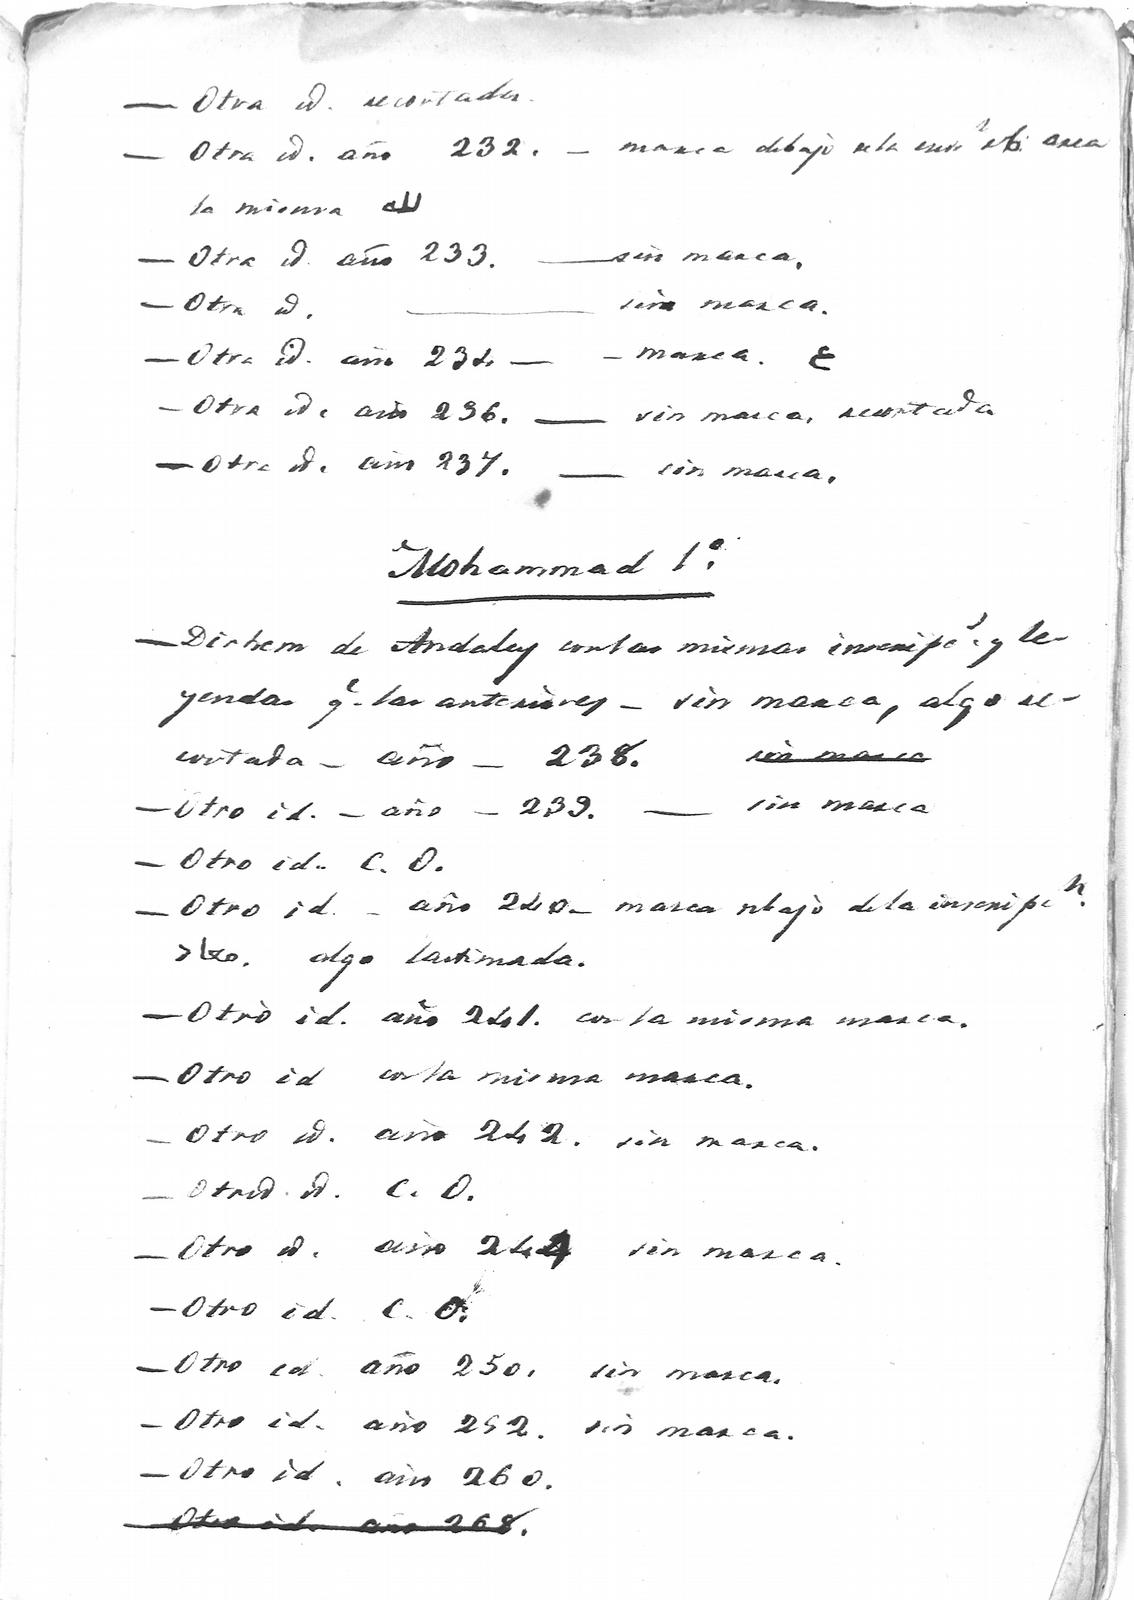 — Otra id. recortada.
— Otra id. año 232. — marca debajo de la area
la misma
— Otra id. año 233. — sin marca.
— Otra id. — sin marca.
— Otra id. año 234 — — marca. ع
— Otra id. año 236. — sin marca, recortada
— Otra id. año 237. — sin marca.
Mohammad 1º.
— Dirhem de Andalus con las mismas inscripc.s y le-
yendas q.e las anteriores — sin marca, algo re-
cortada — año — 238. sin marca
— Otro id. — año — 239. — sin marca
— Otro id. C. O.
— Otro id. — año 240 — marca debajo de la inscripc.n
algo lastimada.
— Otro id. año 241. con la misma marca.
— Otro id con la misma marca.
— Otro id. año 242. sin marca.
— Otro id. C. O.
— Otro id. año 244 sin marca.
— Otro id. C. O.
— Otro id. año 250. sin marca.
— Otro id. año 252. sin marca.
— Otro id. año 260.
— Otro id. año 268.